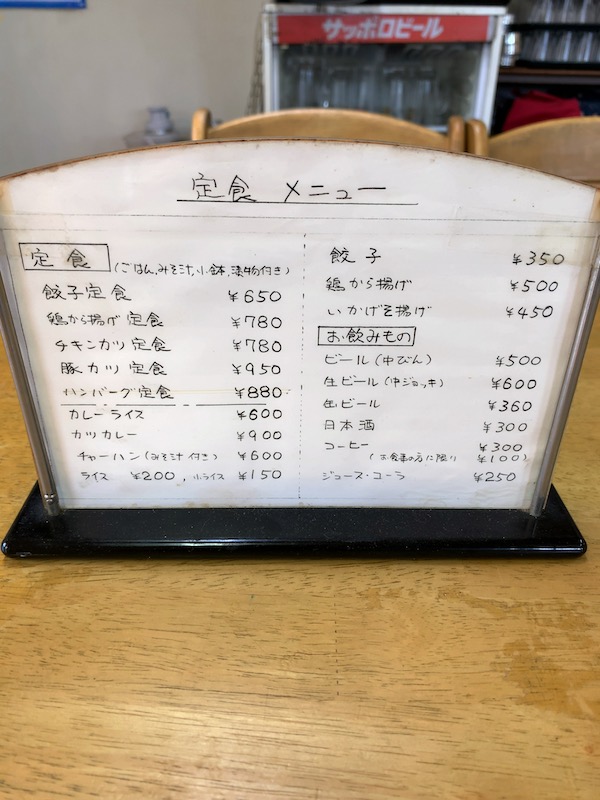 サッポロビール
定食 メニュー
定食 (ごはん,みそ汁,小鉢,漬物付き)
餃子定食 ¥650
鶏から揚げ定食 ¥780
チキンカツ定食 ¥780
豚カツ定食 ¥950
ハンバーグ定食 ¥880
カレーライス ¥600
カツカレー ¥900
チャーハン(みそ汁付き) ¥600
ライス ¥200, 小ライス ¥150
餃子 ¥350
鶏から揚げ ¥500
いかげそ揚げ ¥450
お飲みもの
ビール(中びん) ¥500
生ビール(中ジョッキ) ¥600
缶ビール ¥360
日本酒 ¥300
コーヒー ¥300
(お食事の方に限り ¥100)
ジュース・コーラ ¥250